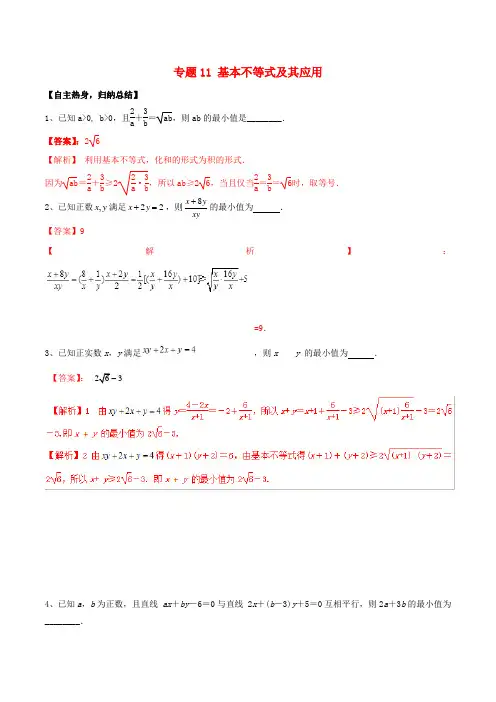 专题11 基本不等式及其应用
【自主热身,归纳总结】
1、已知a>0, b>0,且2/a+3/b=√ab,则ab的最小值是________.
【答案】:2√6
【解析】 利用基本不等式,化和的形式为积的形式.
因为√ab=2/a+3/b≥2√(2/a·3/b),所以ab≥2√6,当且仅当2/a=3/b=√6时,取等号.
2、已知正数x,y满足x+2y=2,则(x+8y)/xy的最小值为 .
【答案】9
【 解 析 】 :
(x+8y)/xy=(8/x+1/y)(x+2y)/2=1/2[(x/y+16y/x)+10]≥√(x/y·16y/x)+5
=9.
3、已知正实数x,y满足xy+2x+y=4,则x y 的最小值为 .
【答案】: 2√6-3
【解析】1 由xy+2x+y=4得y=(4-2x)/(x+1)=-2+6/(x+1),所以x+y=x+1+6/(x+1)-3≥2√((x+1)6/(x+1))-3=2√6
-3.即 x + y 的最小值为 2√6-3.
【解析】2 由xy+2x+y=4得(x+1)(y+2)=6,由基本不等式得(x+1)+(y+2)≥2√((x+1)(y+2))=
2√6,所以x+ y≥2√6-3. 即 x + y 的最小值为 2√6-3.
4、已知a,b为正数,且直线 ax+by-6=0与直线 2x+(b-3)y+5=0互相平行,则2a+3b的最小值为
________.